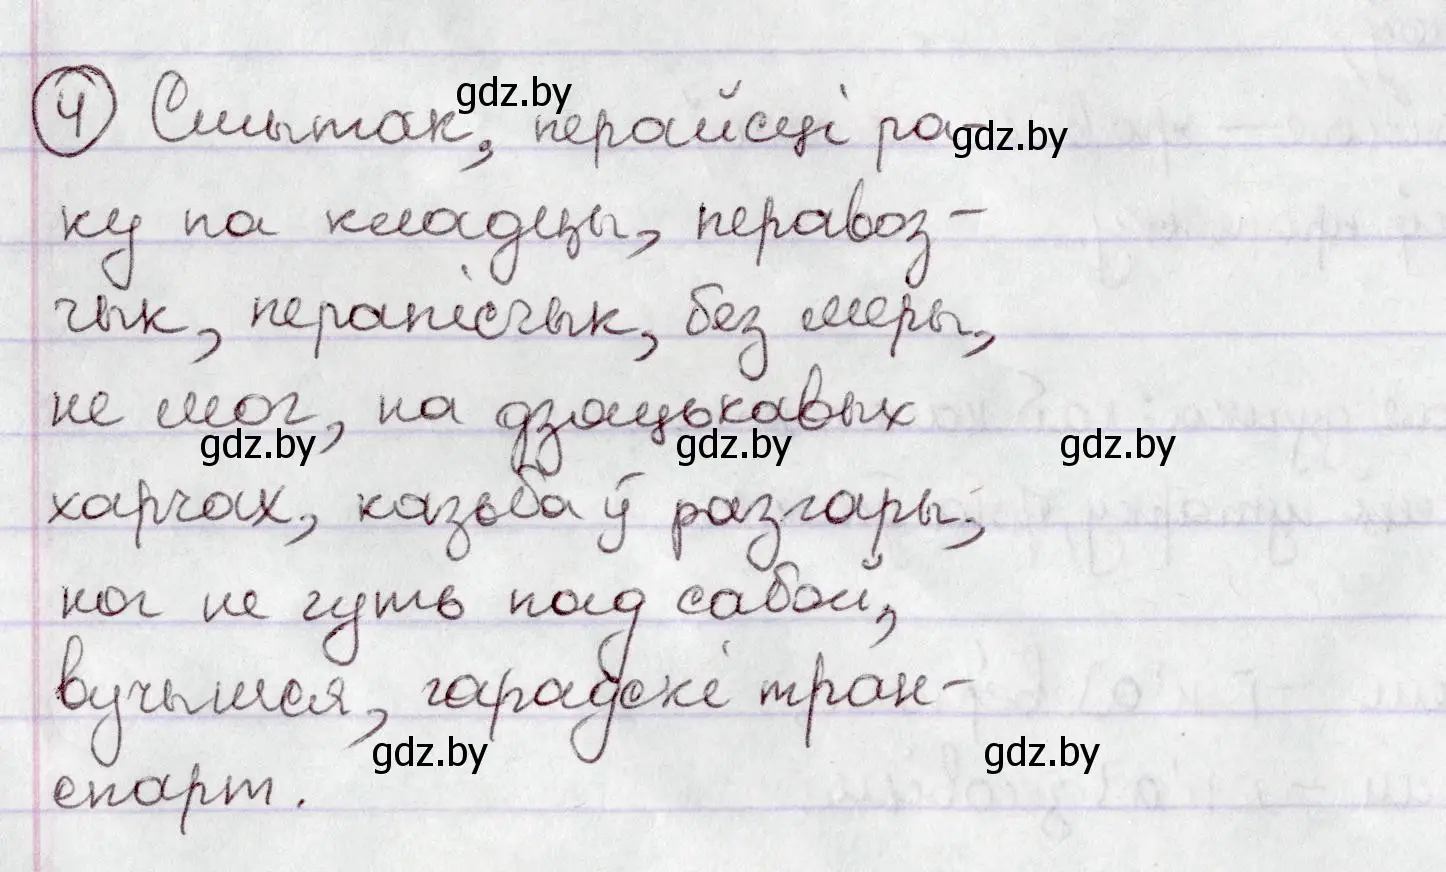 4 Смытак, перайсці ра-
ку па кладцы, перавоз-
чык, перапісчык, без меры,
не мог, на дзяцькавых
харчах, казьба ў разгары,
ног не чуць пад сабой,
вучышся, гарадскі тран-
спарт.
gdz.by
gdz.by
gdz.by
gdz.by
gdz.by
gdz.by
gdz.by